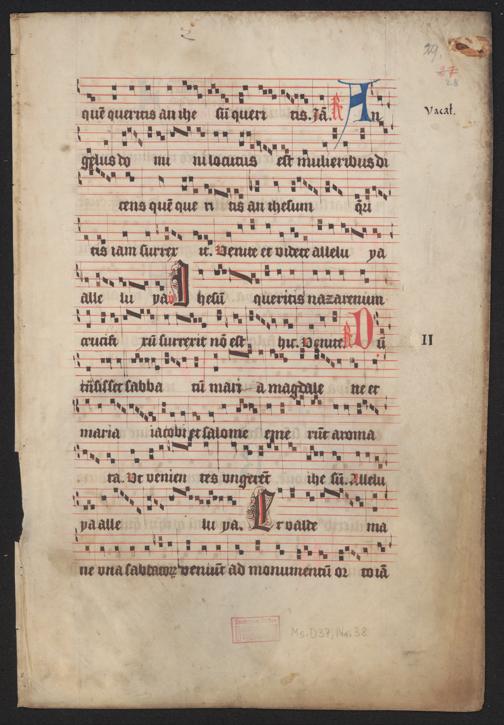 29.
27
28
quē queritis an ihe sū queri tis. Jā. R An
Vacat.
gelus do mi ni locutus est mulieribus di
cens quē que ri tis an ihesum q̄ri
tis iam surrex it. Venite et videte allelu ya
alle lu ya. V Ihesū queritis nazarenum
crucifi xū surrexit nō est hic. Venite. R Dū
II
trāsisset sabba tū mari a magdale ne et
maria iacobi et salome eme rūt aroma
ta. Ut venien tes ungerēt ihe sū. Allelu
ya alle lu ya. Et valde ma
ne una sabbatorꝝ veniūt ad monumentū or to iā
Ms. D 37, Nr. 38